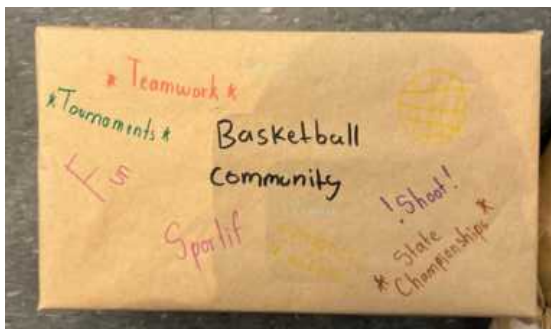 * Teamwork *
* Tournaments *
Basketball
Community
Sportif
! Shoot!
* State
Championships *